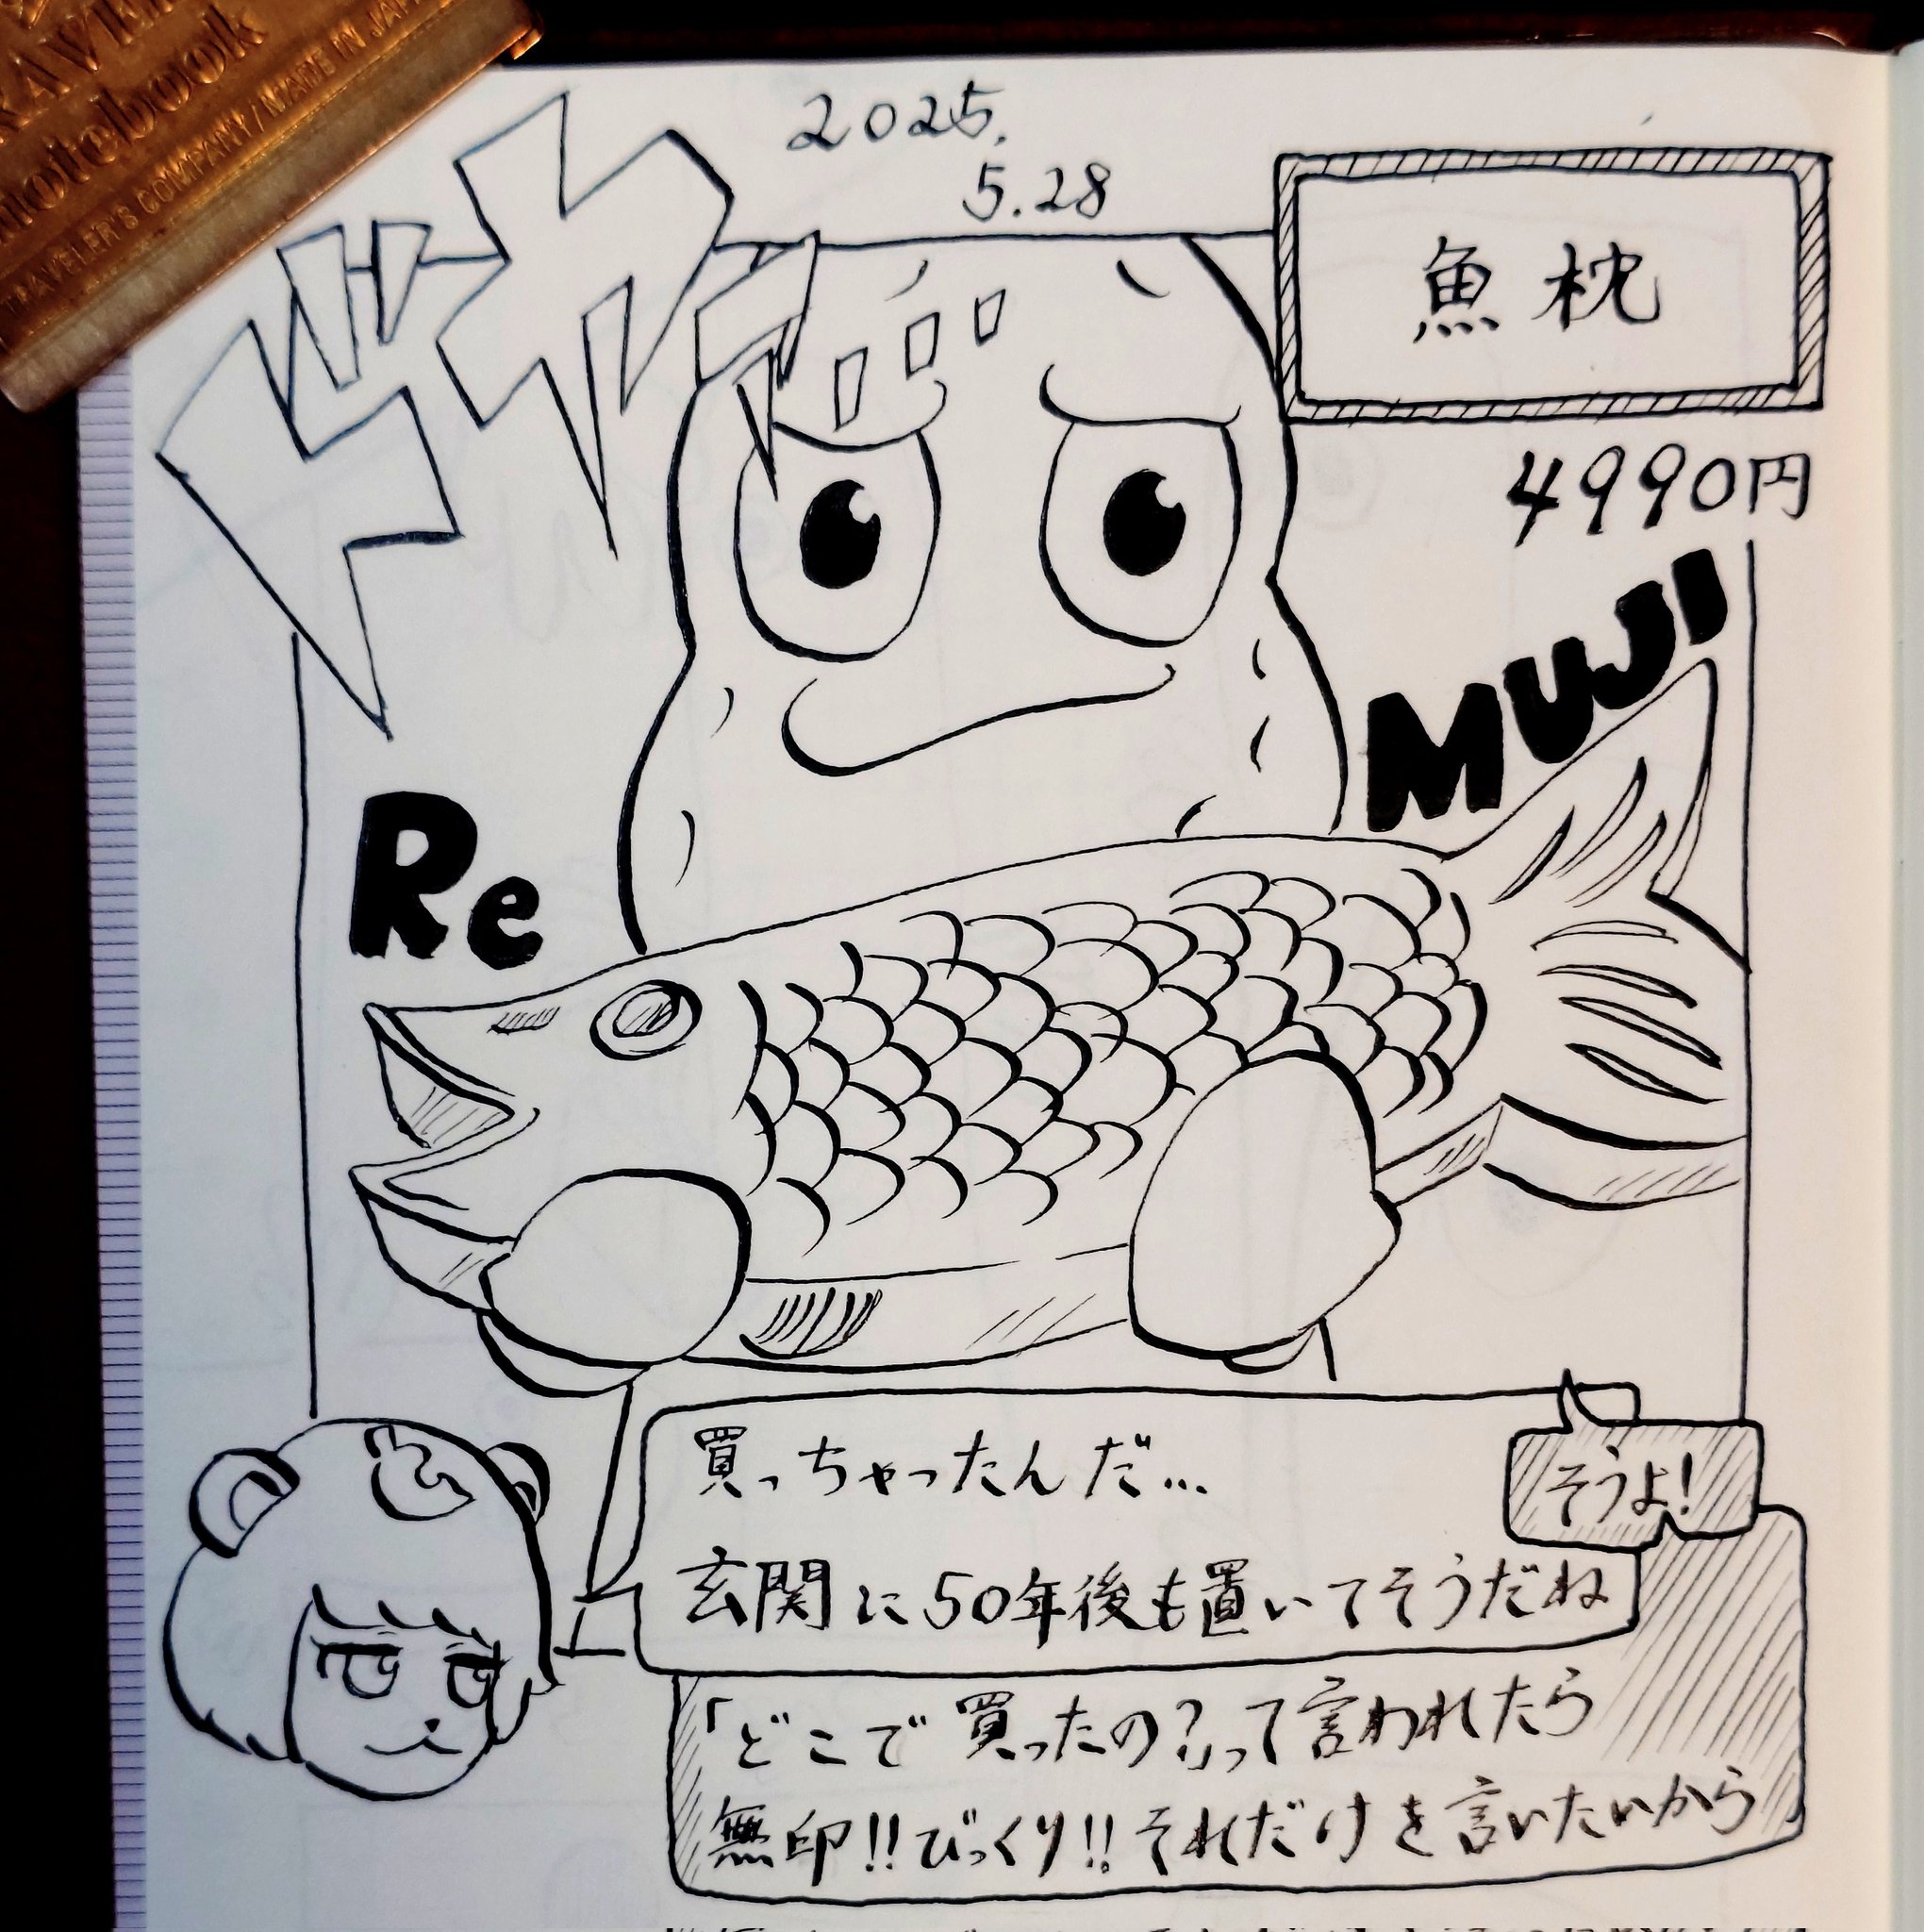 notebook
TRAVELER'S COMPANY/MADE IN JAPA
2025.
5.28
ドヤァ
魚枕
4990円
Re
MUJI
買っちゃったんだ…
そうよ!
玄関に50年後も置いてそうだね
「どこで買ったの?」って言われたら
無印!!びっくり!!それだけを言いたいから